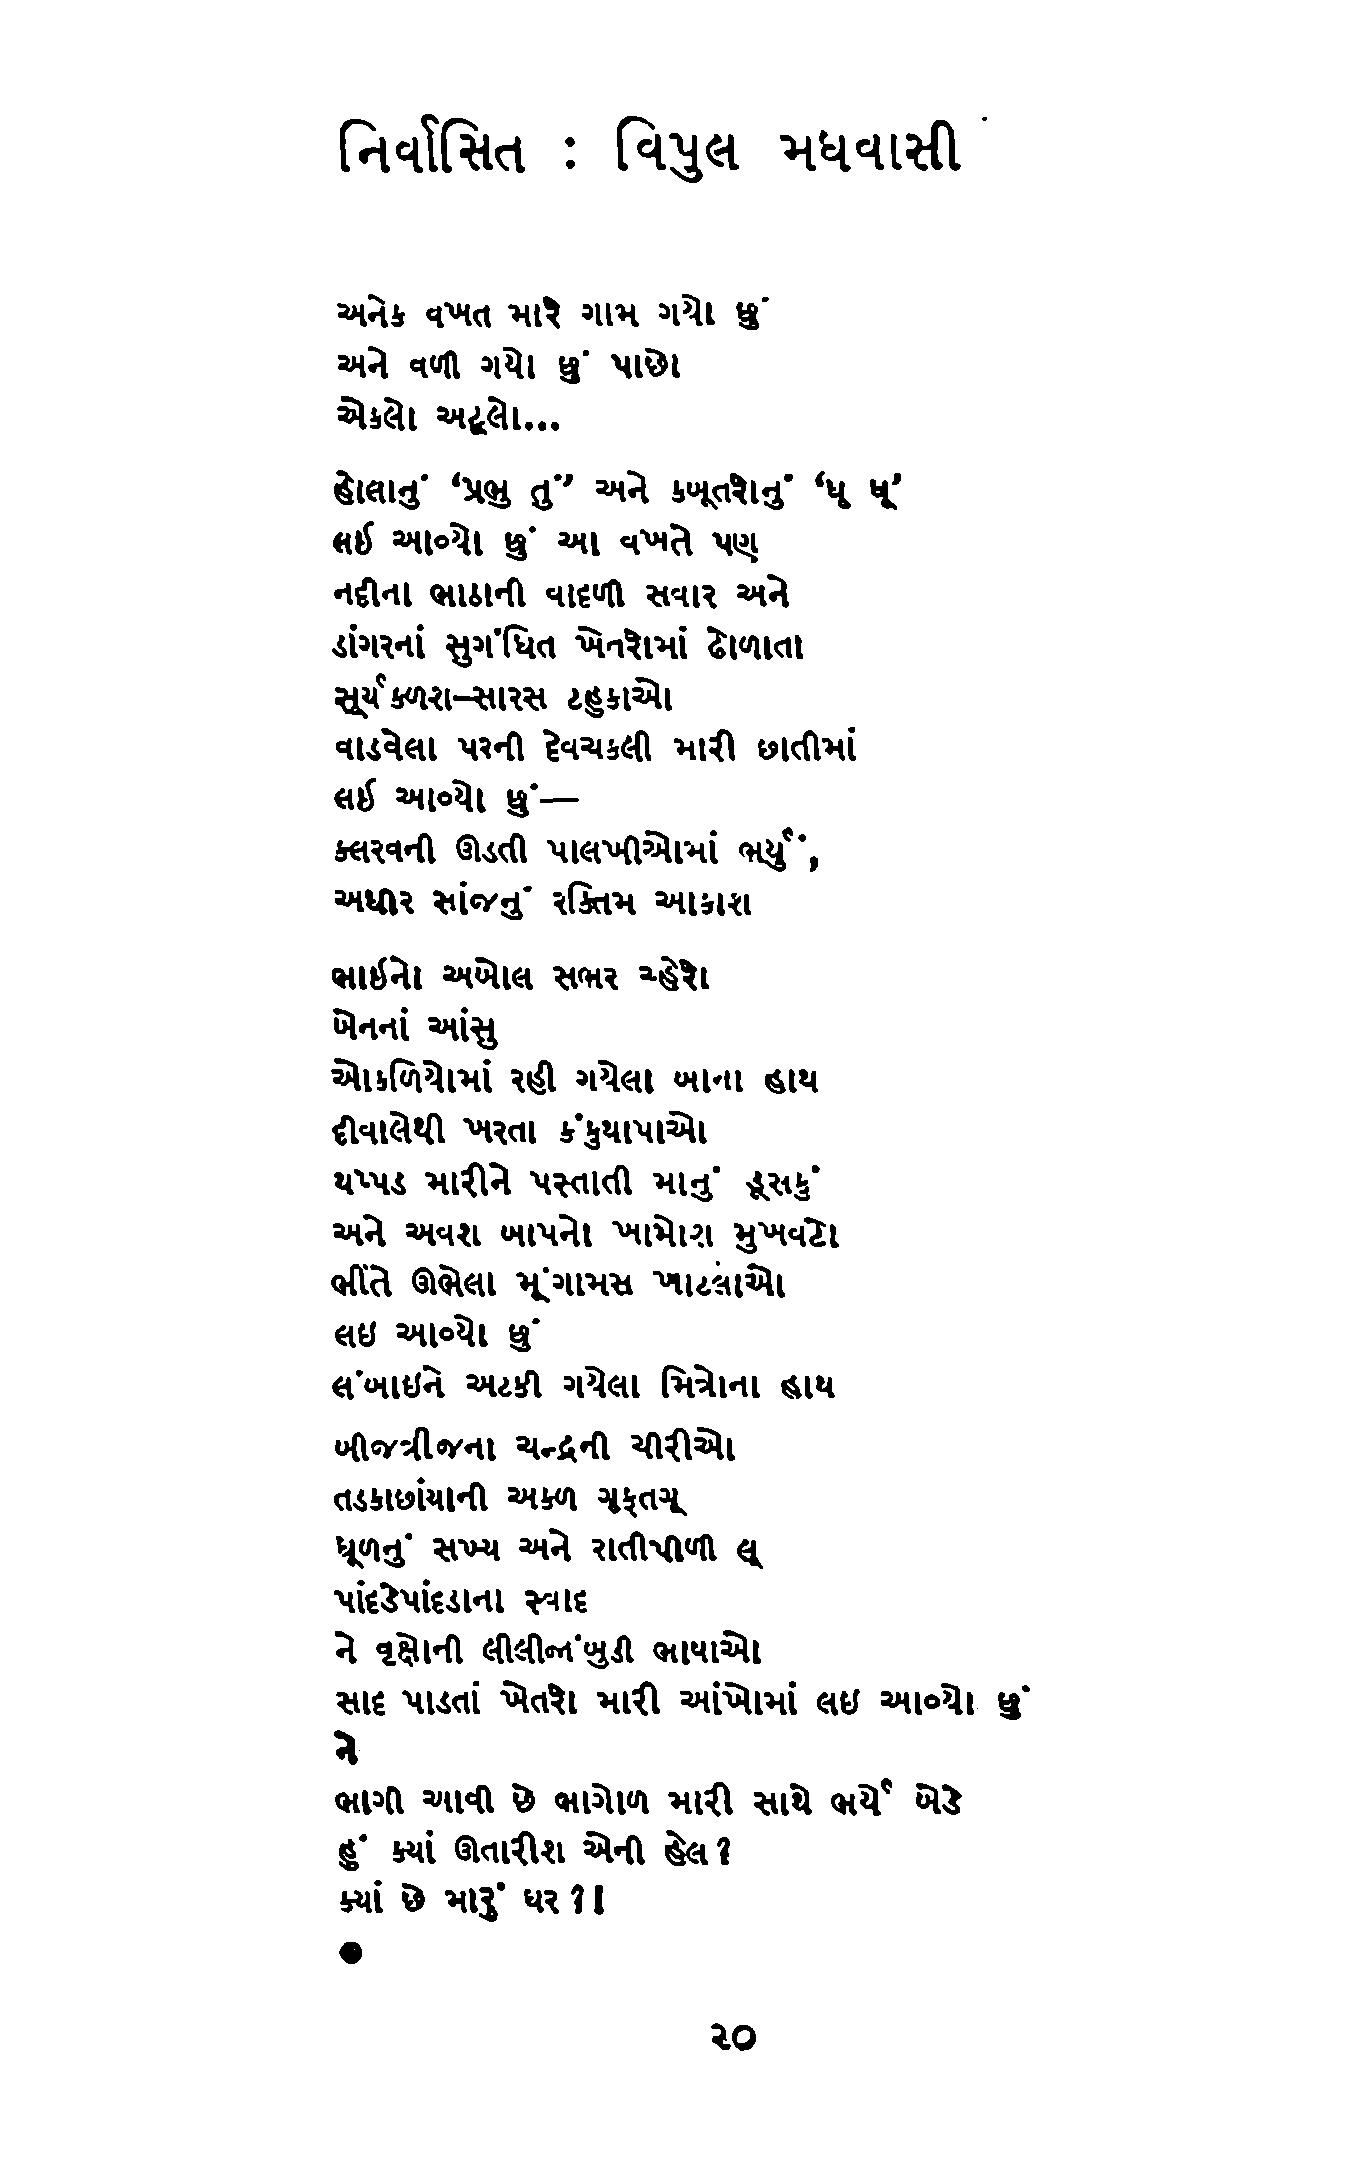 નિર્વાસિત : વિપુલ મધવાસી
અનેક વખત મારે ગામ ગયો છું
અને વળી ગયો છું પાછો
એકલો અટૂલો...
હોલાનું ‘પ્રભુ તું’ અને કબૂતરોનું ‘ઘૂ ઘૂ’
લઈ આવ્યો છું આ વખતે પણ
નદીના ભાઠાની વાદળી સવાર અને
ડાંગરનાં સુગંધિત ખેતરોમાં ઢોળાતા
સૂર્યકળશ–સારસ ટહુકાઓ
વાડવેલા પરની દેવચકલી મારી છાતીમાં
લઈ આવ્યો છું—
કલરવની ઊડતી પાલખીઓમાં ભર્યું,
અધીર સાંજનું રક્તિમ આકાશ
ભાઈનો અબોલ સભર ચ્હેરો
બેનનાં આંસુ
ઓકળિયોમાં રહી ગયેલા બાના હાથ
દીવાલેથી ખરતા કંકુથાપાઓ
થપ્પડ મારીને પસ્તાતી માનું ડૂસકું
અને અવશ બાપનો ખામોશ મુખવટો
ભીંતે ઊભેલા મૂંગામસ ખાટલાઓ
લઇ આવ્યો છું
લંબાઇને અટકી ગયેલા મિત્રોના હાથ
બીજત્રીજના ચન્દ્રની ચીરીઓ
તડકાછાંયાની અકળ ગૂફતગૂ
ધૂળનું સખ્ય અને રાતીપીળી લૂ
પાંદડેપાંદડાના સ્વાદ
ને વૃક્ષોની લીલીજાંબુડી ભાષાઓ
સાદ પાડતાં ખેતરો મારી આંખોમાં લઇ આવ્યો છું
ને
ભાગી આવી છે ભાગોળ મારી સાથે ભર્યે બેડે
હું ક્યાં ઊતારીશ એની હેલ?
ક્યાં છે મારું ઘર?!
●
૨૦